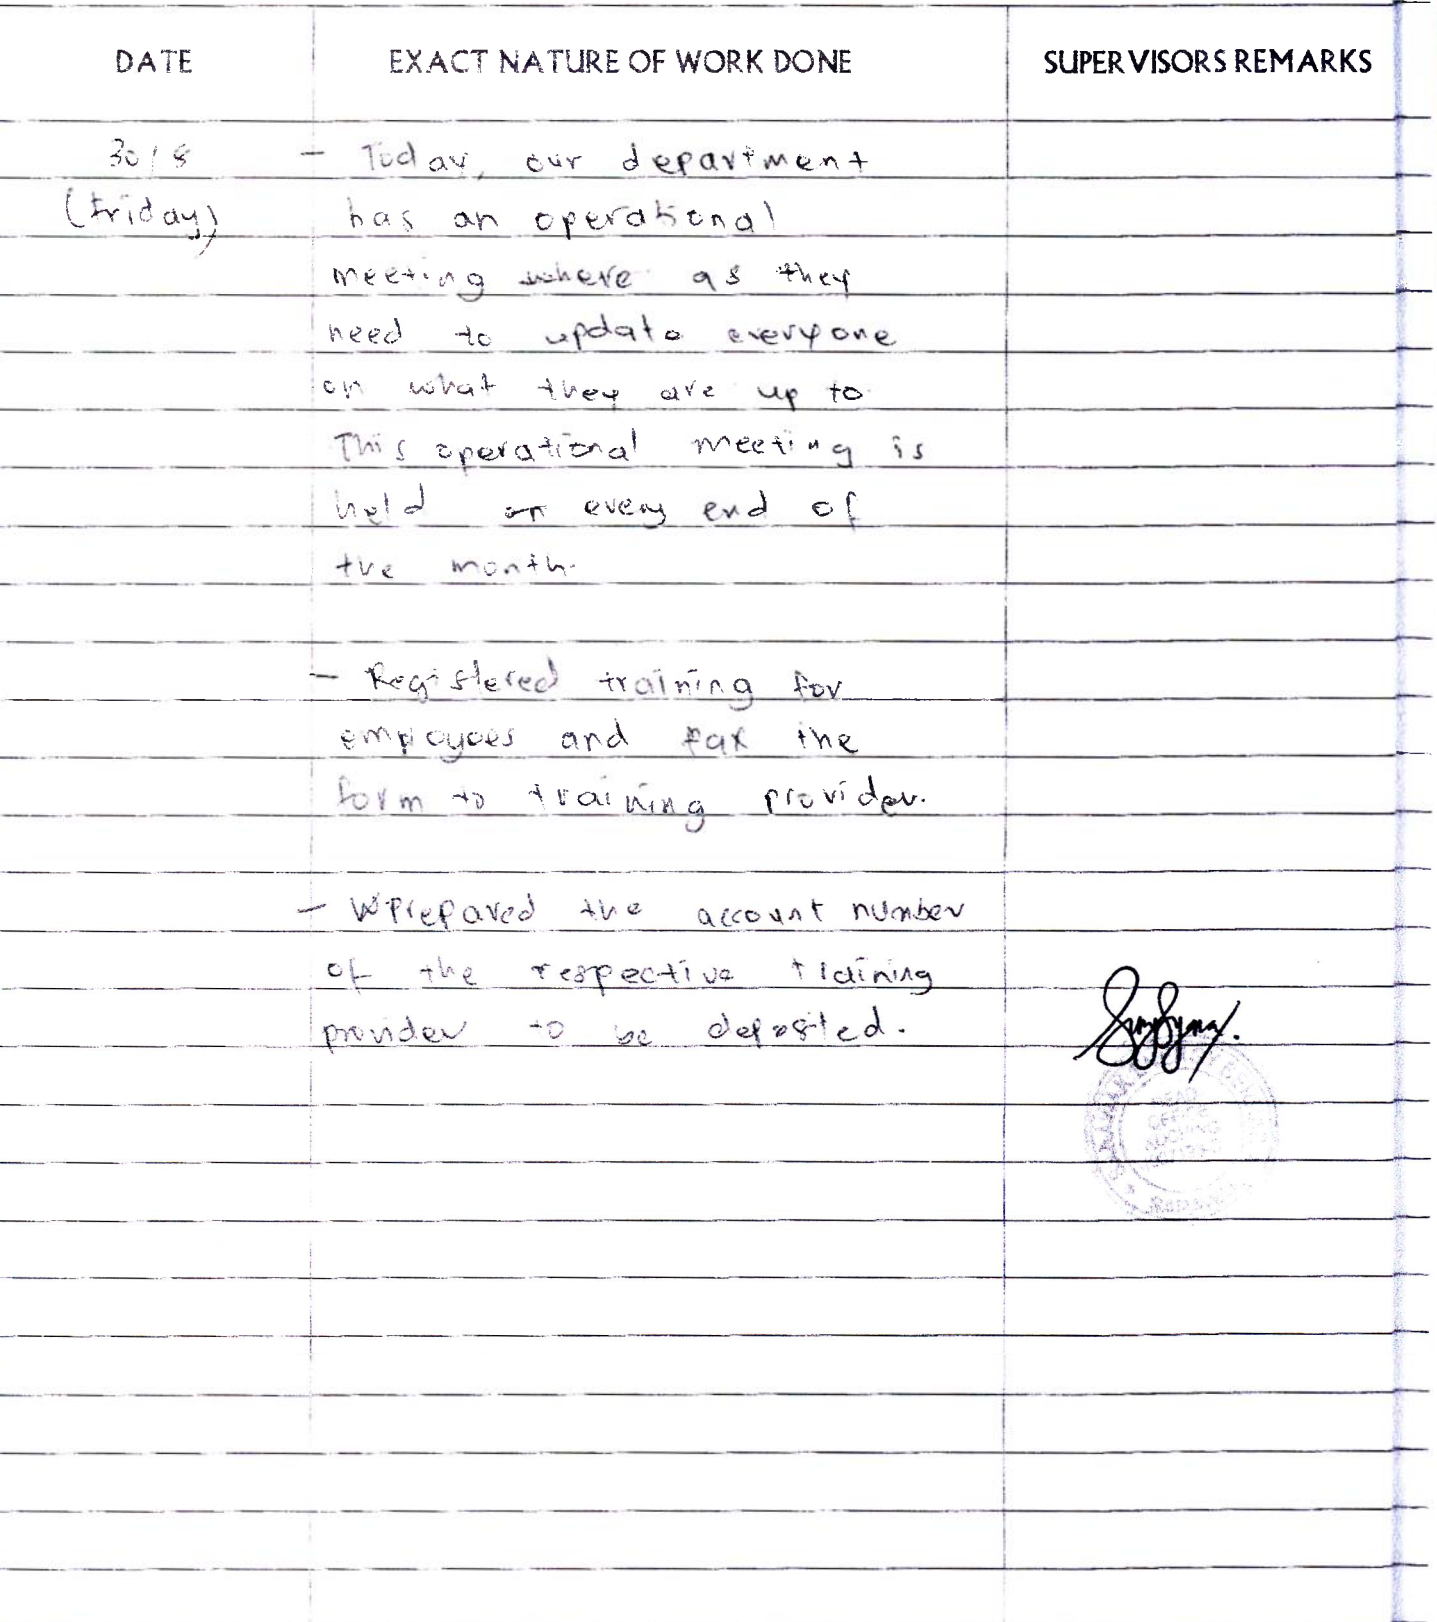 DATE EXACT NATURE OF WORK DONE SUPERVISORS REMARKS
30/8 - Today, our department
(Friday) has an operational
meeting where as they
need to update everyone
on what they are up to
This operational meeting is
held on every end of
the month.
- Registered training for
employees and fax the
form to training provider.
- Prepared the account number
of the respective training
provider to be deposited.
HEAD
OFFICE